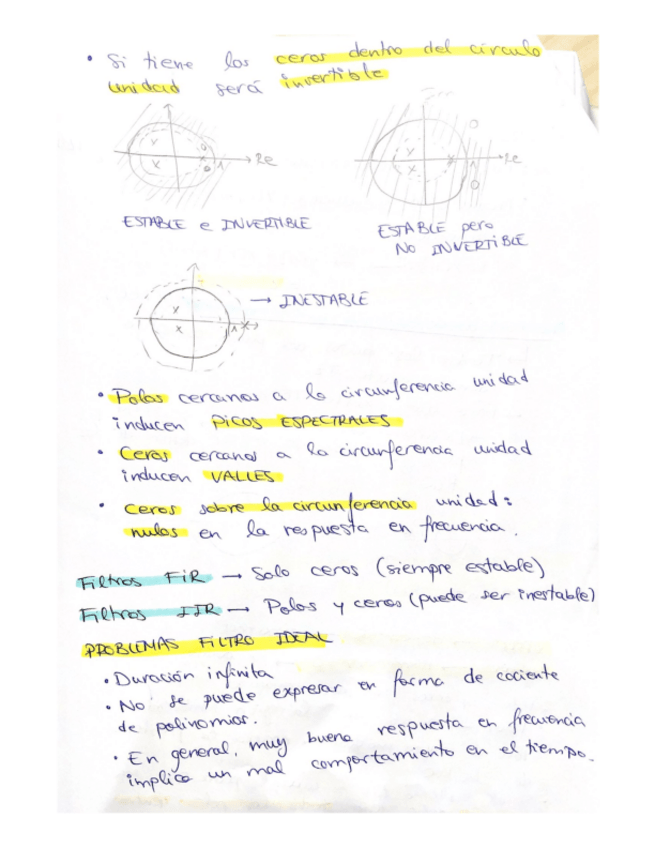 • Si tiene los ceros dentro del círculo
unidad será invertible
Re
1
Re
ESTABLE e INVERTIBLE
ESTABLE pero
NO INVERTIBLE
→ INESTABLE
1
• Polos cercanos a la circunferencia unidad
inducen PICOS ESPECTRALES
• Ceros cercanos a la circunferencia unidad
inducen VALLES
• Ceros sobre la circunferencia unidad:
nulos en la respuesta en frecuencia.
Filtros FIR → Solo ceros (siempre estable)
Filtros IIR → Polos y ceros (puede ser inestable)
PROBLEMAS FILTRO IDEAL
• Duración infinita
• No se puede expresar en forma de cociente
de polinomios.
• En general, muy buena respuesta en frecuencia
implica un mal comportamiento en el tiempo.